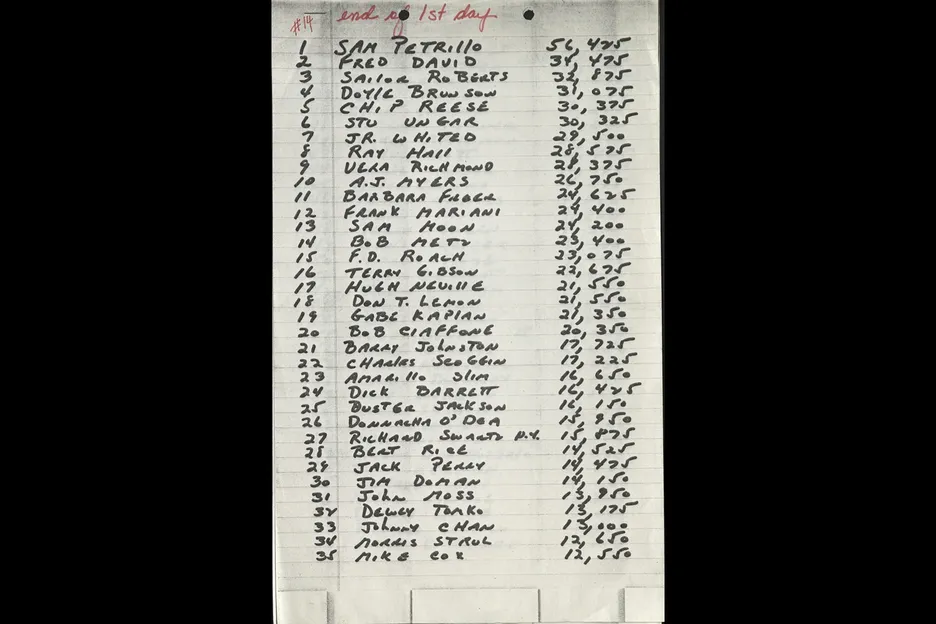 #14 end of 1st day
1 SAM PETRILLO 56,425
2 FRED DAVID 34,475
3 SAILOR ROBERTS 32,875
4 DOYLE BRUNSON 31,075
5 CHIP REESE 30,375
6 STU UNGAR 30,325
7 JR. WHITED 29,500
8 RAY HALL 28,575
9 VERA RICHMOND 28,375
10 A.J. MYERS 26,750
11 BARBARA FREER 24,625
12 FRANK MARIANI 24,400
13 SAM MOON 24,200
14 BOB METZ 23,400
15 F.D. ROACH 23,075
16 TERRY GIBSON 22,675
17 HUGH NEVILLE 21,550
18 DON T. LEMON 21,550
19 GABE KAPLAN 21,350
20 BOB CIAFFONE 20,350
21 BARRY JOHNSTON 17,725
22 CHARLES SCOGGIN 17,225
23 AMARILLO SLIM 16,650
24 DICK BARRETT 16,425
25 BUSTER JACKSON 16,150
26 DONNACHA O'DEA 15,950
27 RICHARD SWARTZ N.Y. 15,875
28 BERT RICE 14,525
29 JACK PERRY 14,475
30 JIM DOMAN 14,150
31 JOHN MOSS 13,950
32 DEWEY TOMKO 13,175
33 JOHNNY CHAN 13,000
34 MORRIS STRUL 12,650
35 MIKE COX 12,550